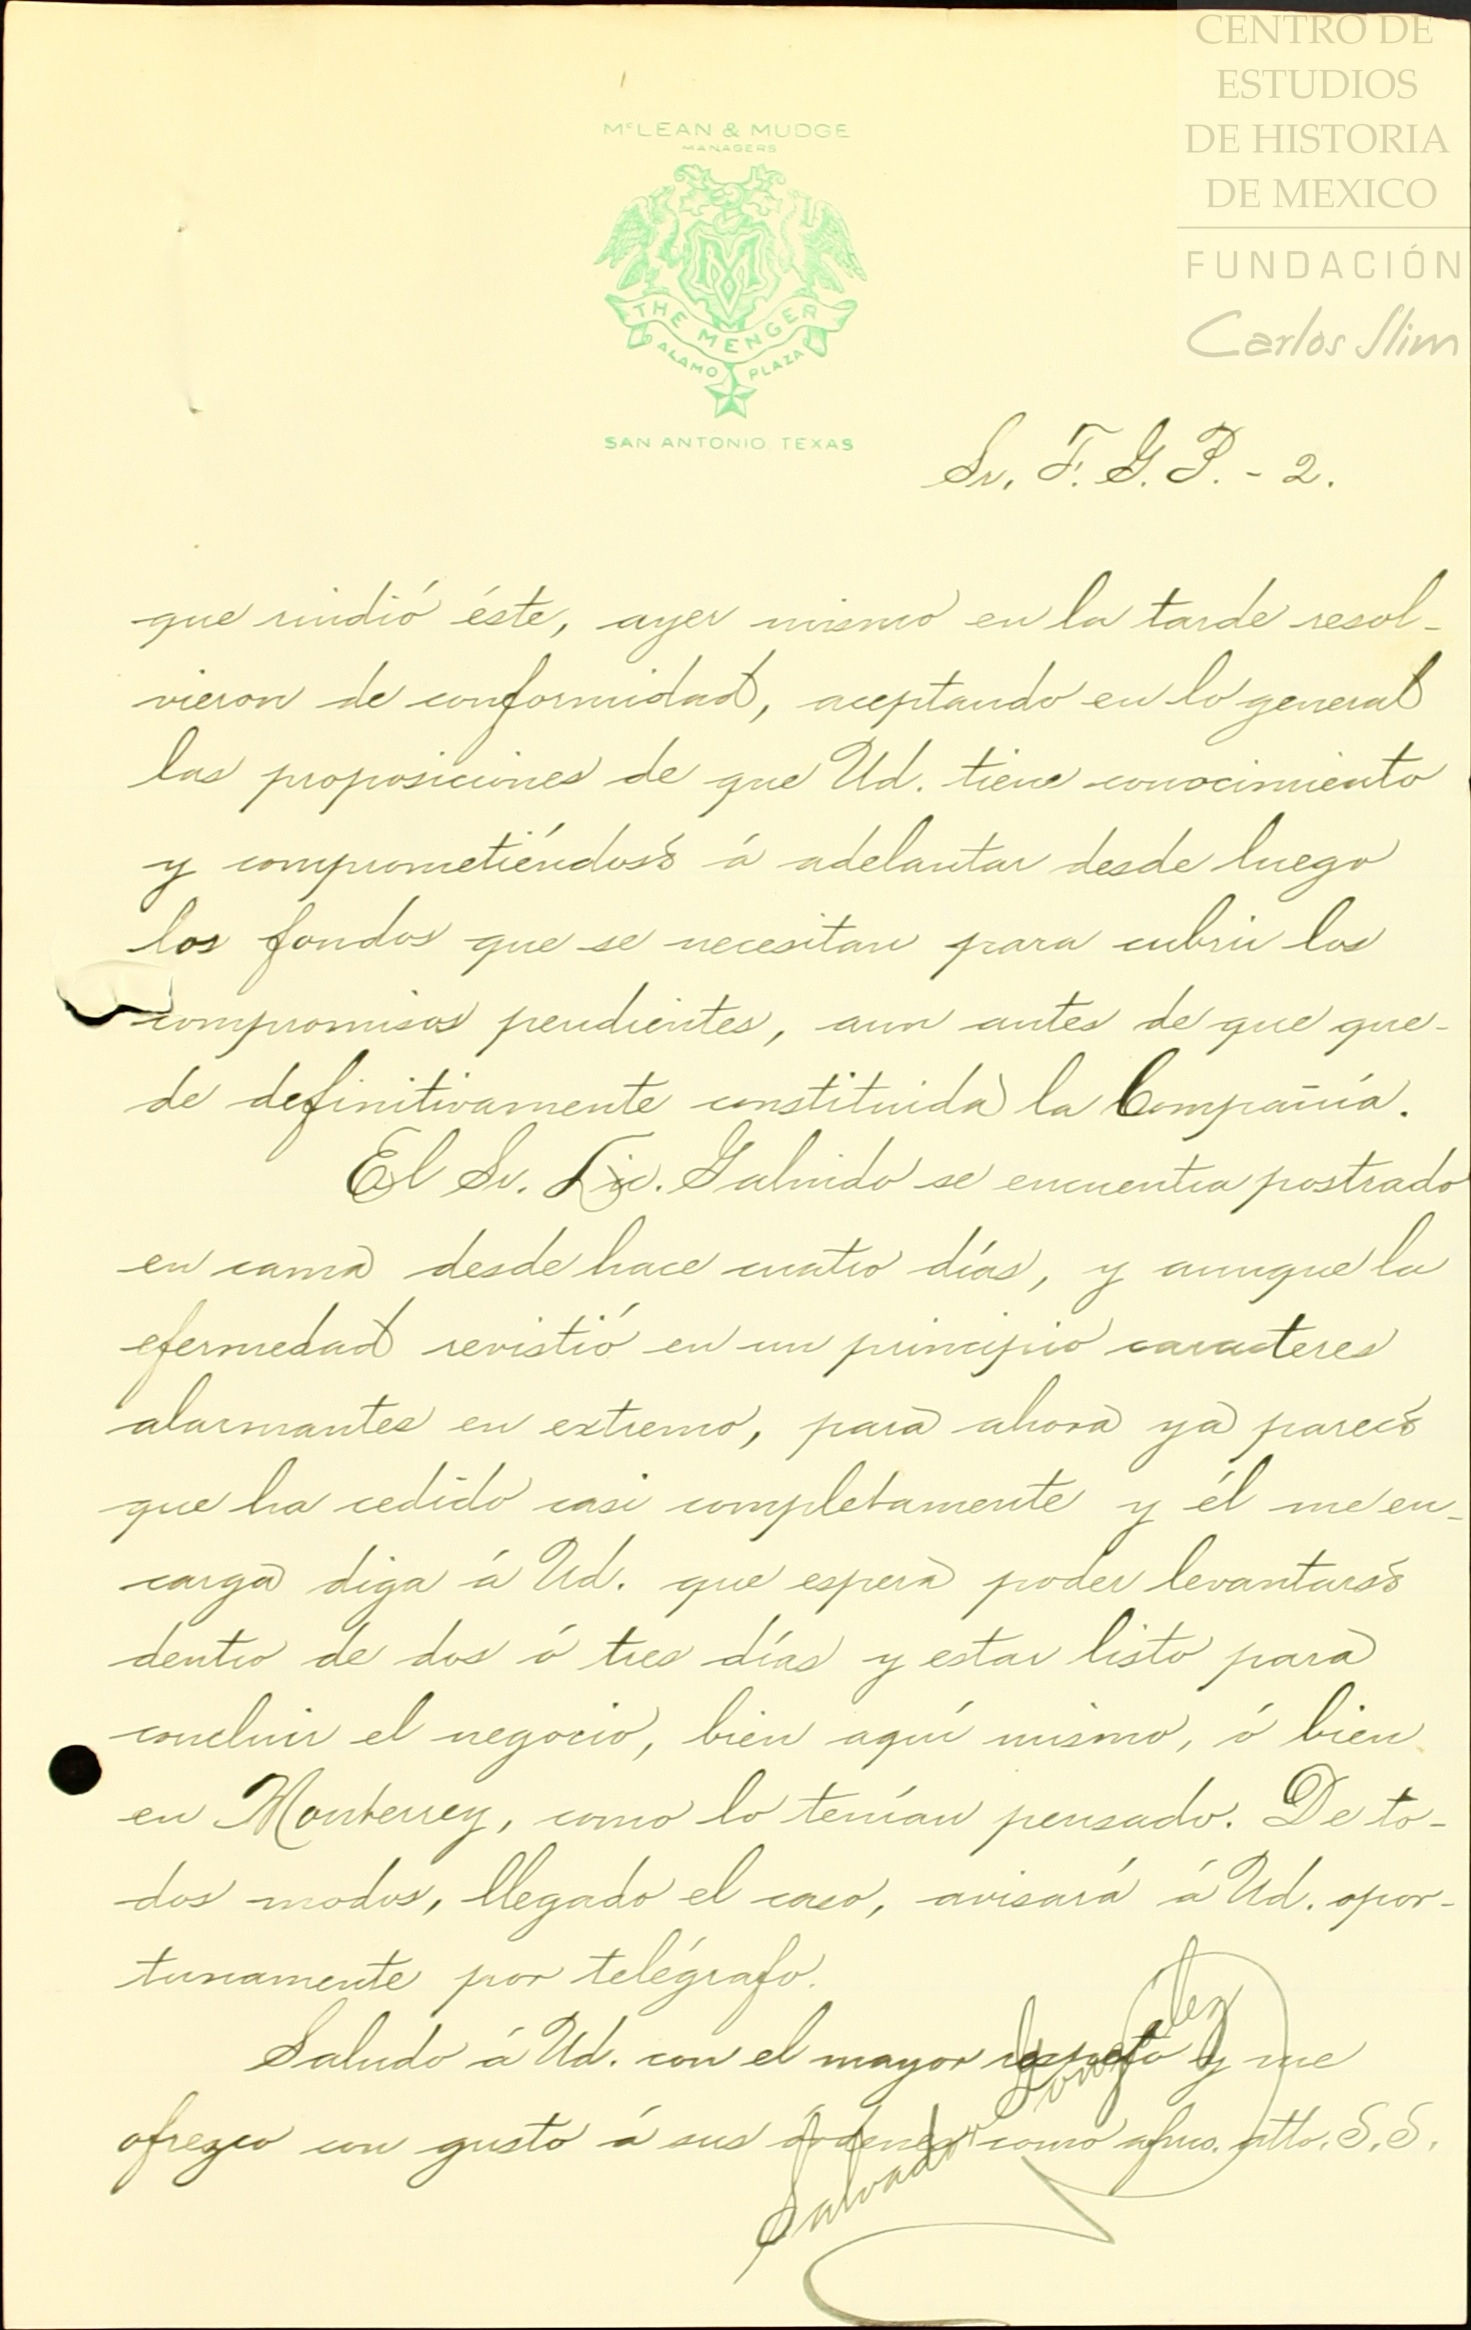 CENTRO DE
ESTUDIOS
DE HISTORIA
DE MEXICO
FUNDACIÓN
Carlos Slim
McLEAN & MUDGE
MANAGERS
THE MENGER
ALAMO PLAZA
SAN ANTONIO TEXAS
Sr. F. G. P. - 2.
que rindió éste, ayer mismo en la tarde resol-
vieron de conformidad, aceptando en lo general
las proposiciones de que Ud. tiene conocimiento
y comprometiéndose á adelantar desde luego
los fondos que se necesitan para cubrir los
compromisos pendientes, aun antes de que que-
de definitivamente constituida la Compañía.
El Sr. Lic. Galindo se encuentra postrado
en cama desde hace cuatro días, y aunque la
efermedad revistió en un principio caracteres
alarmantes en extremo, para ahora ya parece
que ha cedido casi completamente y él me en-
carga diga á Ud. que espera poder levantarse
dentro de dos ó tres días y estar listo para
concluir el negocio, bien aquí mismo, ó bien
en Monterrey, como lo tenían pensado. De to-
dos modos, llegado el caso, avisará á Ud. opor-
tunamente por telégrafo.
Saludo á Ud. con el mayor respeto y me
ofrezco con gusto á sus órdenes como afmo. atto. S. S.
Salvador González